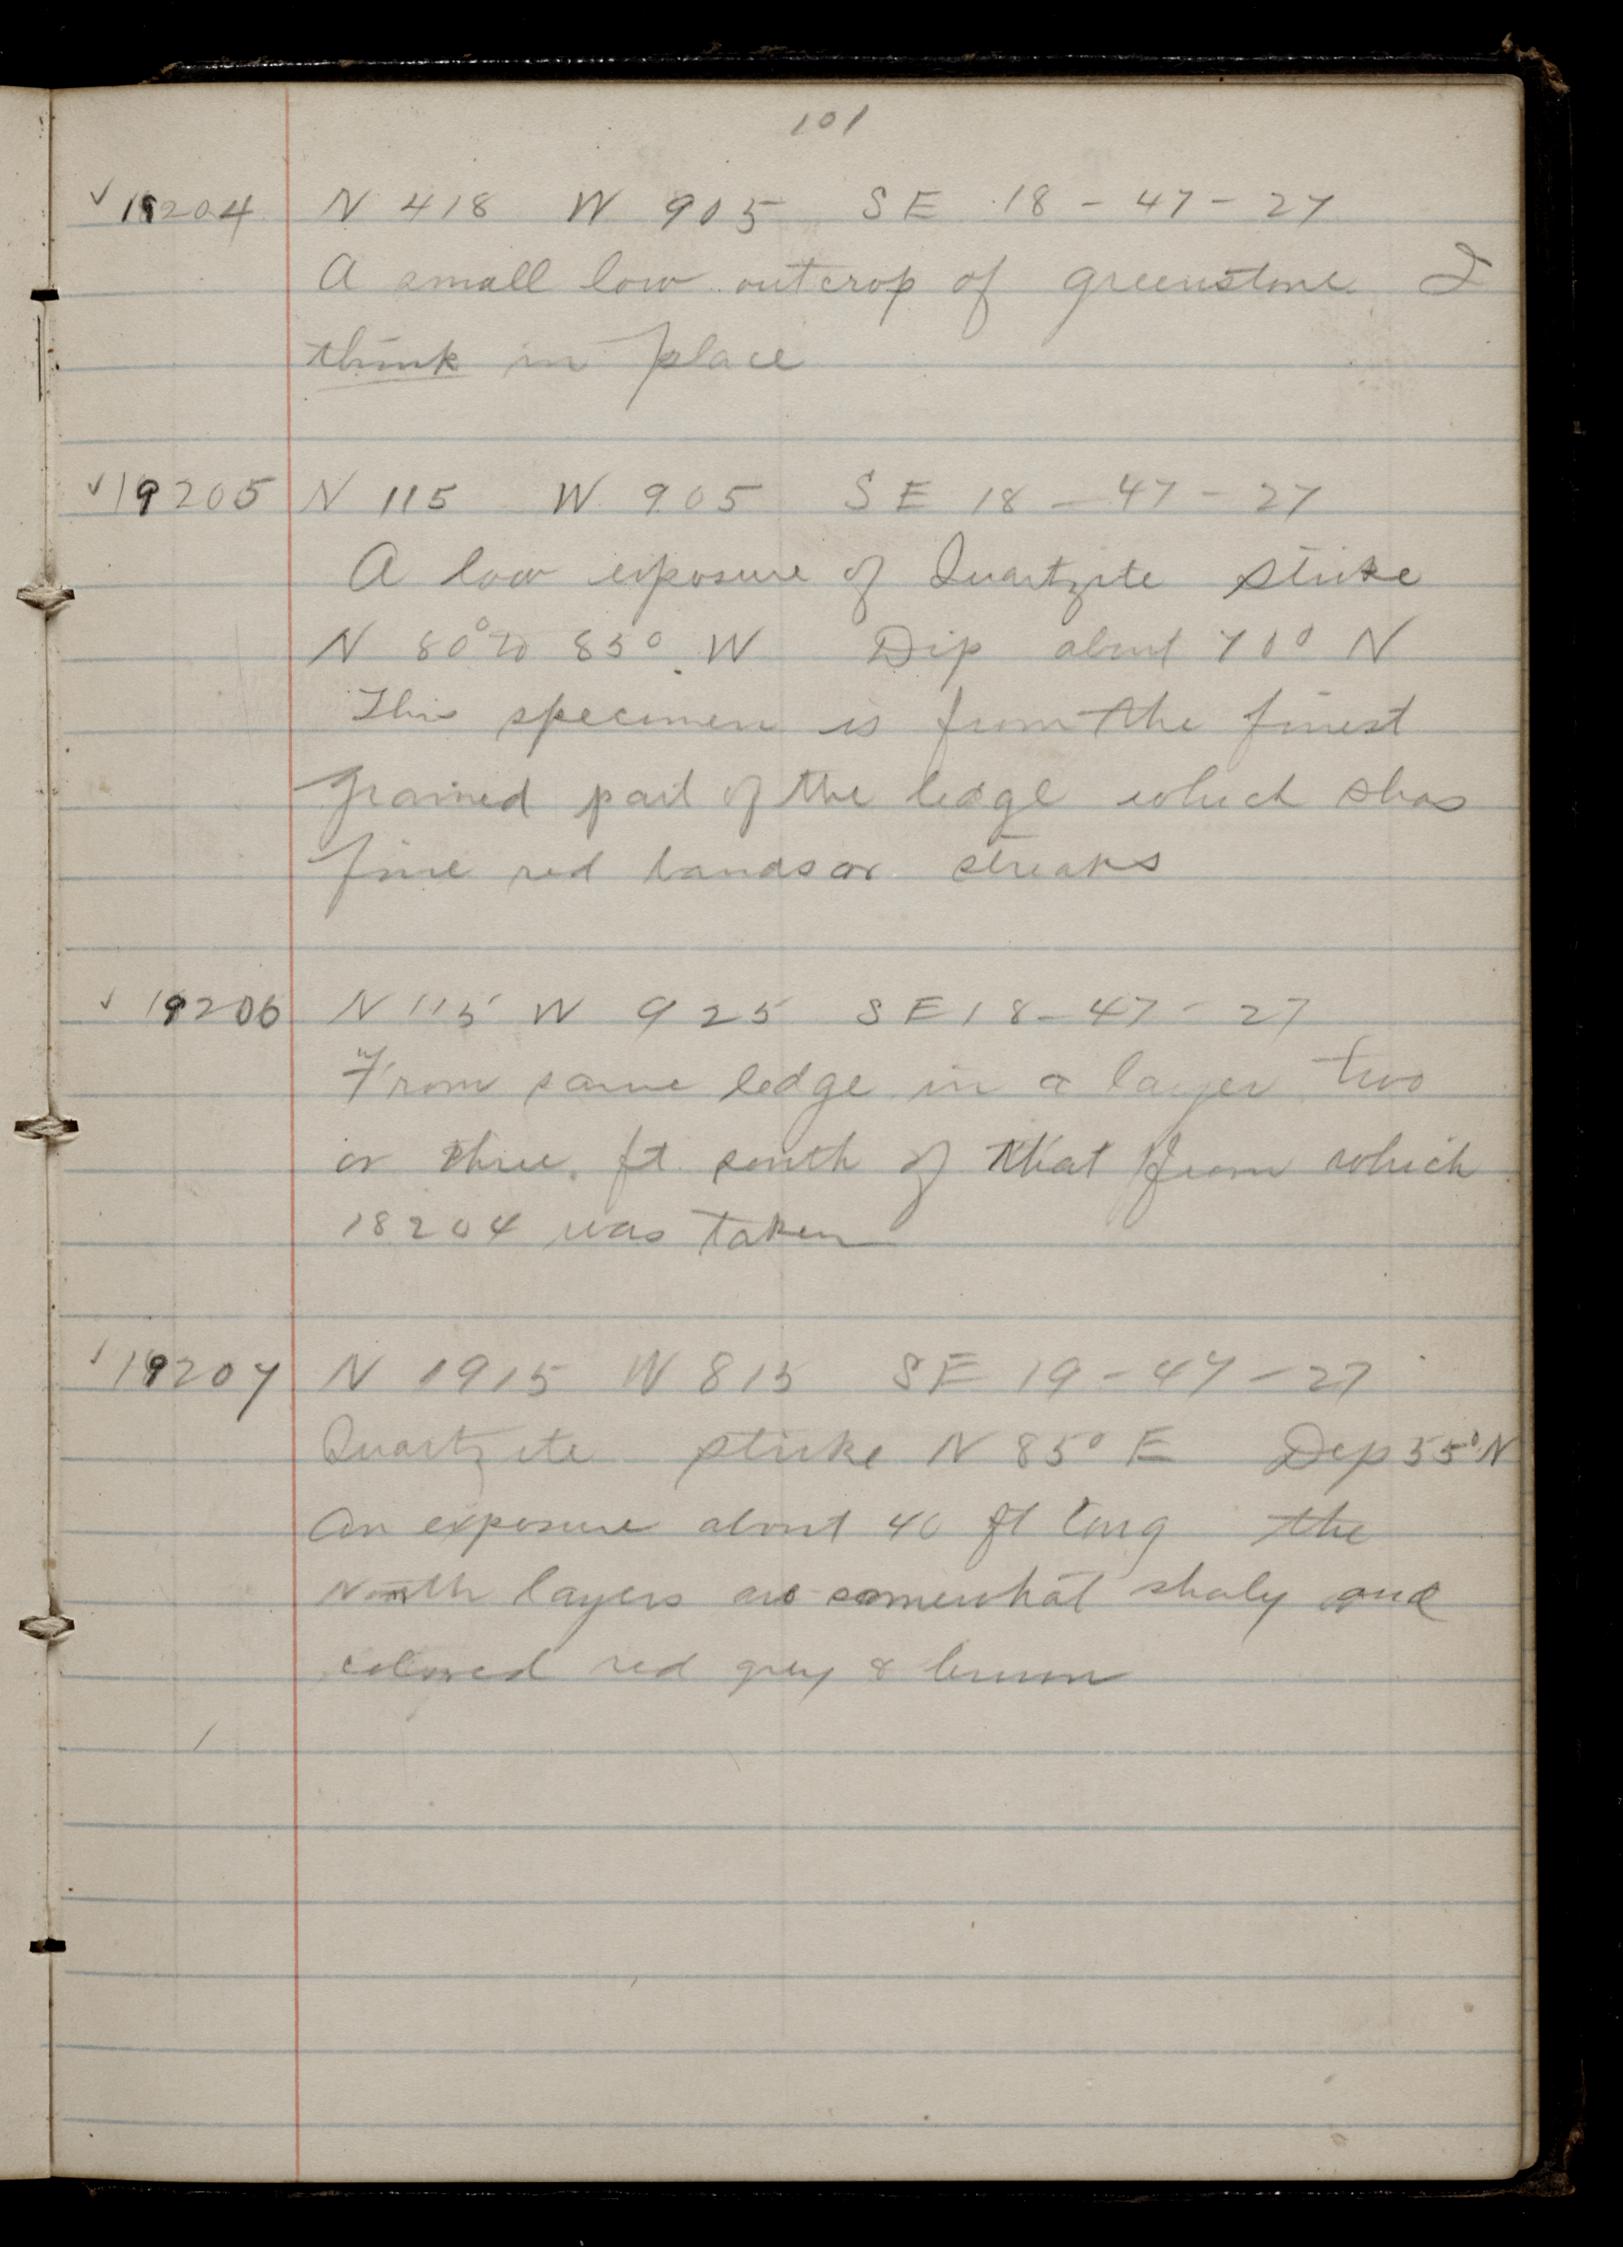 101
✓ 19204 N 418 W 905 SE 18 - 47 - 27
A small low outcrop of greenstone I
think in place
✓ 19205 N 115 W 905 SE 18 - 47 - 27
A low exposure of Quartzite strike
N 80° to 85° W Dip about 70° N
This specimen is from the finest
grained part of the ledge which has
fine red bands or streaks
✓ 19206 N 115 W 925 SE 18 - 47 - 27
From same ledge in a layer two
or three ft south of that from which
18204 was taken
✓ 19207 N 1915 W 815 SE 19 - 47 - 27
Quartzite strike N 85° E Dip 55° N
An exposure about 40 ft long the
North layers are somewhat shaly and
colored red grey & brown